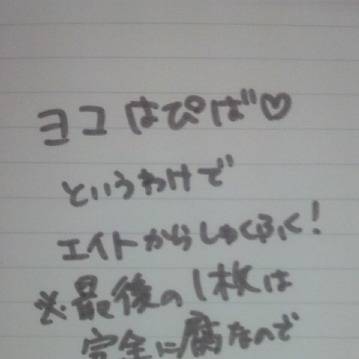 ヨコはぴば♡
というわけで
エイトからしゅくふく!
※最後の1枚は
完全に腐なので